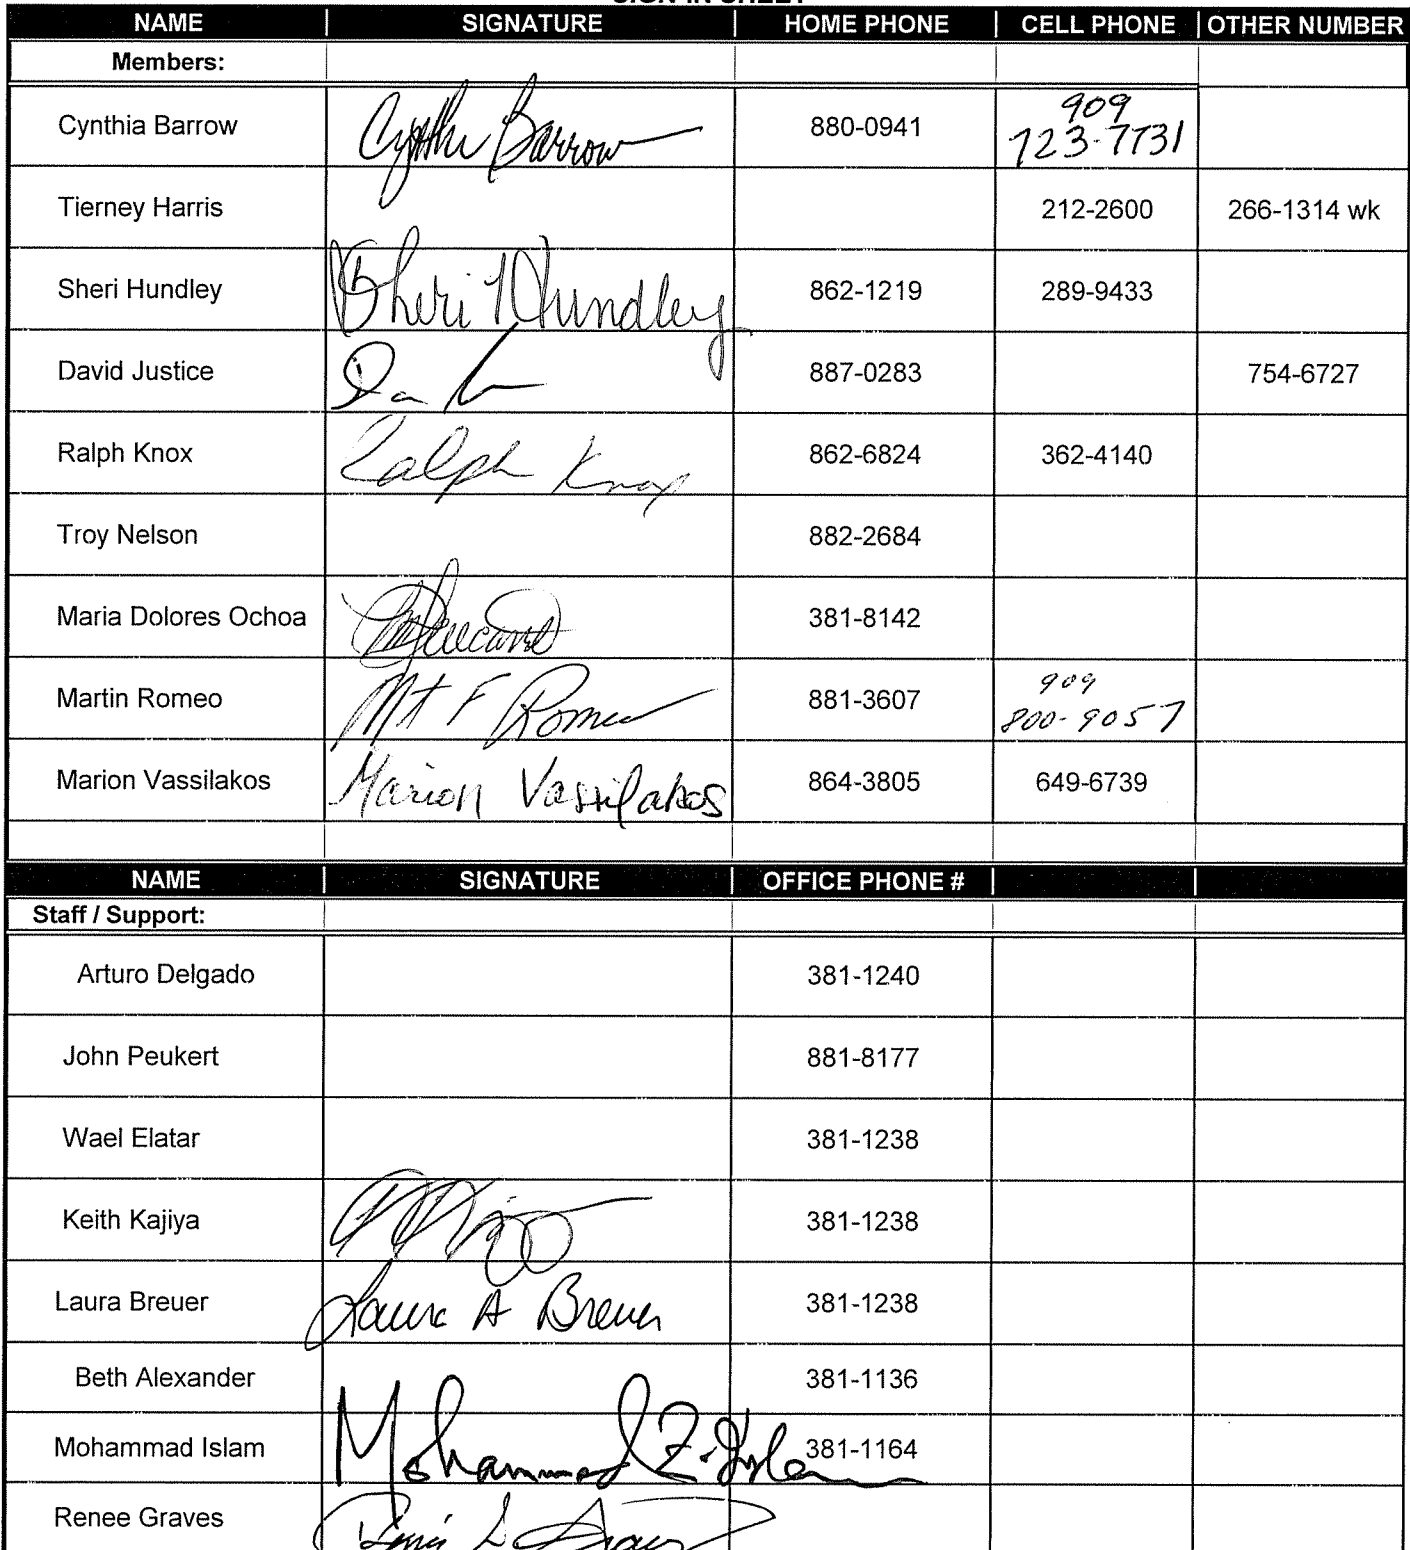 NAME SIGNATURE HOME PHONE CELL PHONE OTHER NUMBER
Members:
Cynthia Barrow Cynthia Barrow 880-0941 909 723-7731
Tierney Harris 212-2600 266-1314 wk
Sheri Hundley Sheri Hundley 862-1219 289-9433
David Justice 887-0283 754-6727
Ralph Knox Ralph Knox 862-6824 362-4140
Troy Nelson 882-2684
Maria Dolores Ochoa 381-8142
Martin Romeo Mt F Romeo 881-3607 909 800-9057
Marion Vassilakos Marion Vassilakos 864-3805 649-6739
NAME SIGNATURE OFFICE PHONE #
Staff / Support:
Arturo Delgado 381-1240
John Peukert 881-8177
Wael Elatar 381-1238
Keith Kajiya 381-1238
Laura Breuer Laura A Breuer 381-1238
Beth Alexander 381-1136
Mohammad Islam Mohammad Z. Islam 381-1164
Renee Graves